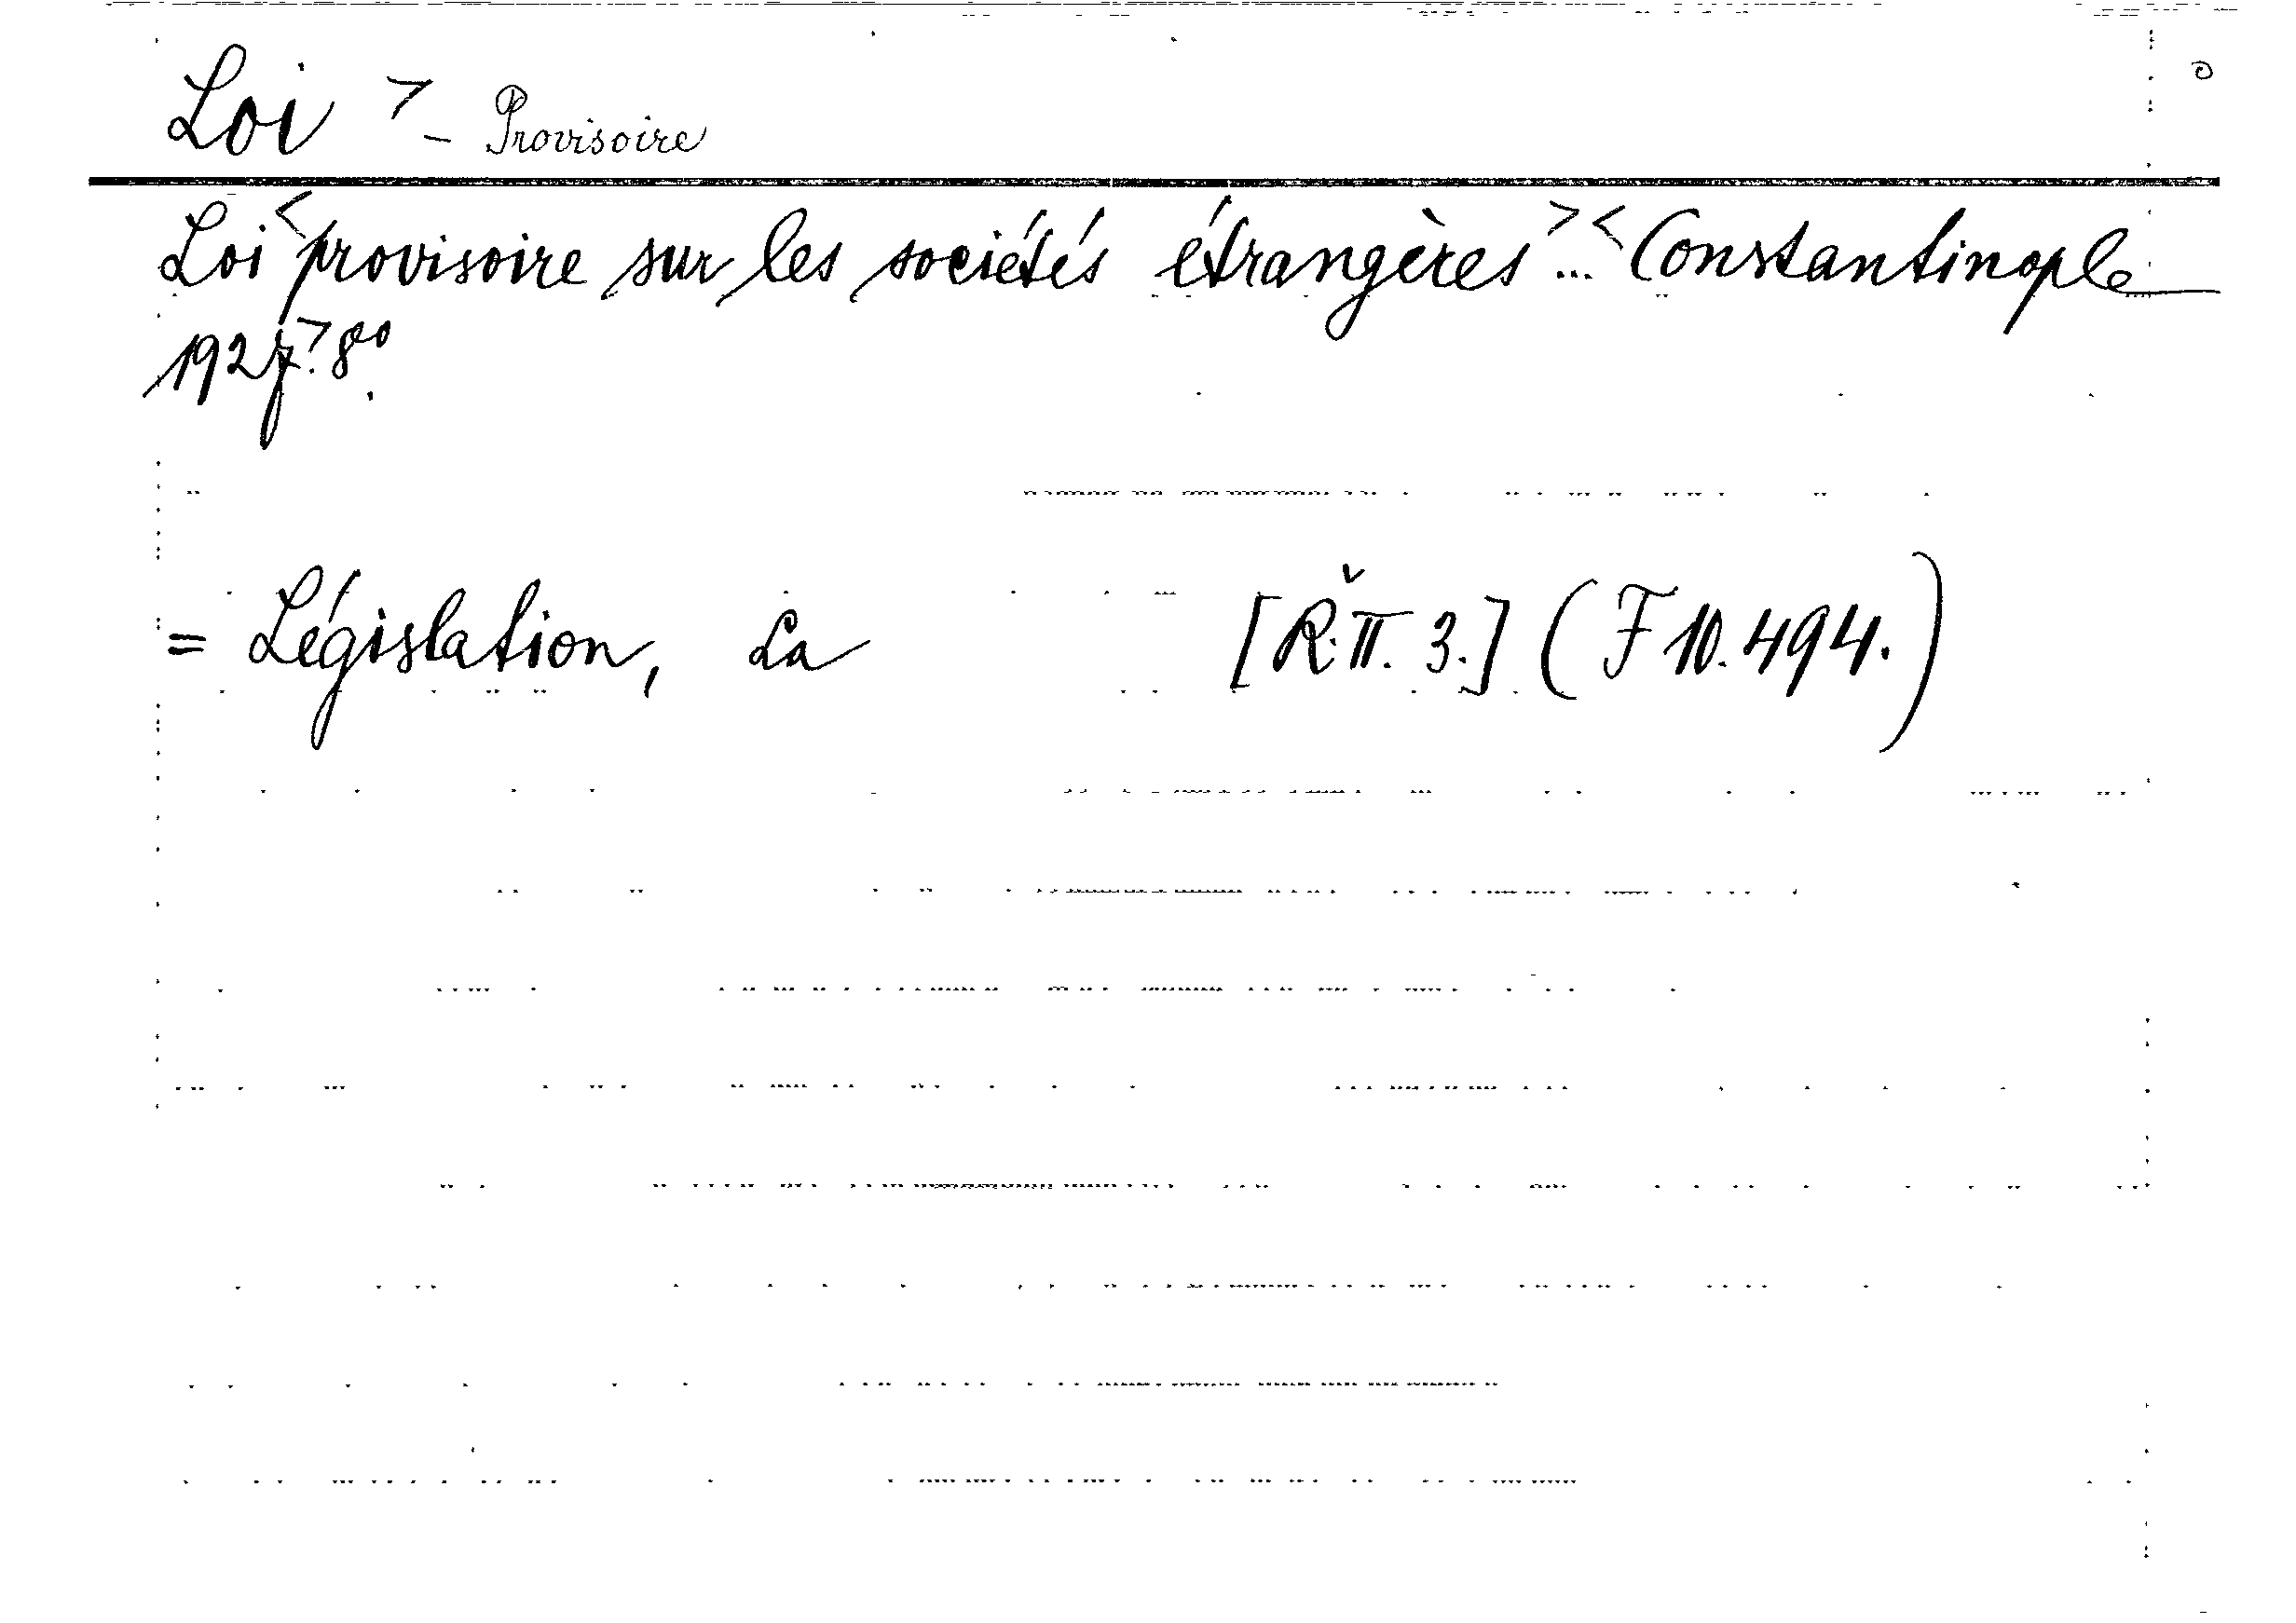 Loi > - Provisoire
Loi <provisoire sur les sociétés étrangères>... <Constantinople
1927>. 8º.
= Législation, La [Ř. II. 3.] (F 10.494.)